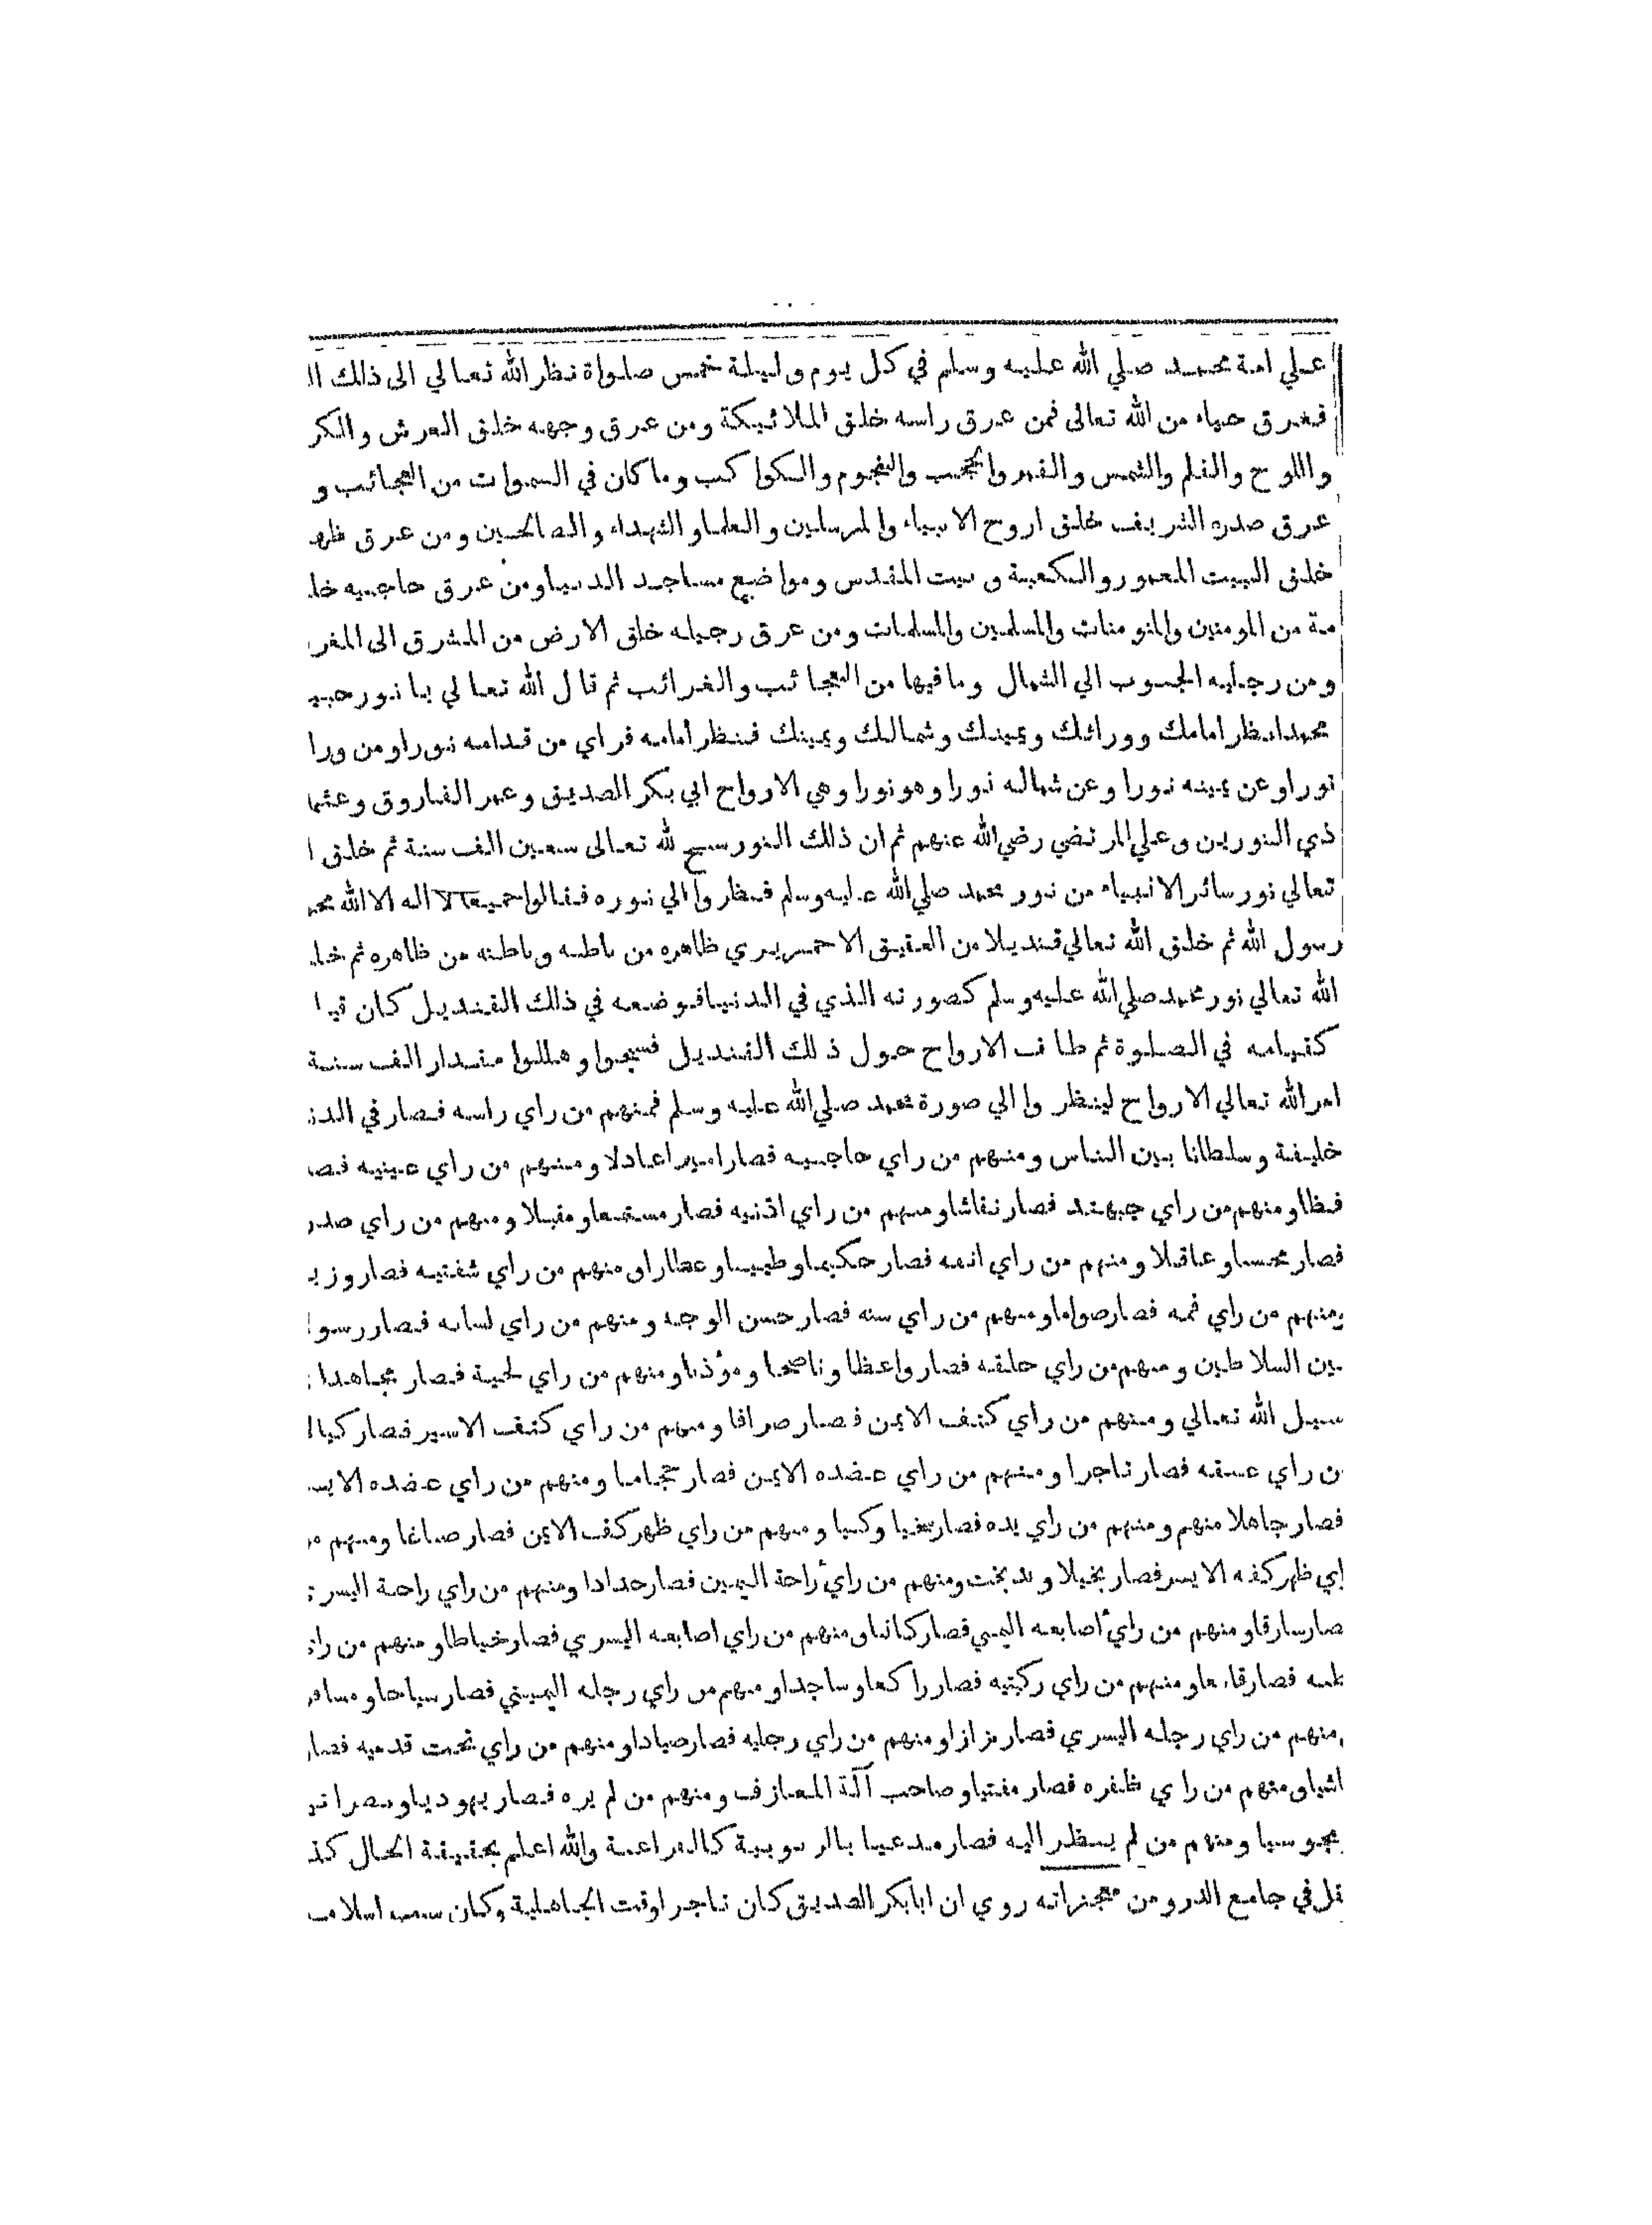 علي امة محمد صلي الله عليه وسلم في كل يوم وليلة خمس صلواة نظر الله تعالي الى ذلك
فعرق حياء من الله تعالى فمن عرق راسه خلق الملائيكة ومن عرق وجهه خلق العرش والكر
واللوح والقلم والشمس والقمر والحجب والنجوم والكواكب وما كان في السموات من العجائب و
عرق صدره الشريف خلق اروح الانبياء والمرسلين والعلما والشهداء والصالحين ومن عرق ظهر
خلق البيت المعمور والكعبة وبيت المقدس ومواضيع مساجد الدنيا ومن عرق حاجبيه خلـ
مة من المومنين والمؤمنات والمسلمين والمسلمات ومن عرق رجيله خلق الارض من المشرق الى المغر
ومن رجليه الجنوب الي الشمال وما فيها من العجائب والغرائب ثم قال الله تعالي يا نور حبيـ
محمد انظر امامك وورائك ويمينك وشمالك ويمينك فنظر امامه فراي من قدامه نورا ومن ورا
نورا وعن يمينه نورا وعن شماله نورا وهو نورا وهي الارواح ابي بكر الصديق وعمر الفاروق وعثما
ذي النورين وعلي المرتضي رضي الله عنهم ثم ان ذلك النور سبح لله تعالى سبعين الف سنة ثم خلق ا
تعالي نور سائر الانبياء من نور محمد صلي الله عليه وسلم فنظروا الي نوره فقالوا جميعا لا اله الا الله محمـ
رسول الله ثم خلق الله تعالي قنديلا من العقيق الاحمر يري ظاهره من باطنه وباطنه من ظاهره ثم خلـ
الله تعالي نور محمد صلي الله عليه وسلم كصورته الذي في الدنيا فوضعه في ذلك القنديل كان قيا
كقيامه في الصلوة ثم طاف الارواح حول ذلك القنديل فسبحوا وهللوا مقدار الف سنة
امر الله تعالي الارواح لينظروا الي صورة محمد صلي الله عليه وسلم فمنهم من راي راسه فصار في الدنـ
خليفة وسلطانا بين الناس ومنهم من راي حاجبيه فصار اميرا عادلا ومنهم من راي عينيه فصـ
فظا ومنهم من راي جبهته فصار نقاشا ومنهم من راي اذنيه فصار مستمعا ومقبلا ومنهم من راي صدر
فصار محسنا وعاقلا ومنهم من راي انفه فصار حكيما وطبيبا وعطارا ومنهم من راي شفتيه فصار وزيـ
ومنهم من راي فمه فصار صواما ومنهم من راي سنه فصار حسن الوجه ومنهم من راي لسانه فصار رسو
بين السلاطين ومنهم من راي حلقه فصار واعظا وناصحا ومؤذنا ومنهم من راي لحية فصار مجاهدا
سبيل الله تعالي ومنهم من راي كتف الايمن فصار صرافا ومنهم من راي كتف الاسير فصار كيالا
ن راي عنقه فصار تاجرا ومنهم من راي عضده الايمن فصار حجاما ومنهم من راي عضده الايسـ
فصار جاهلا منهم ومنهم من راي يده فصار سخيا وكيا ومنهم من راي ظهر كف الايمن فصار صباغا ومنهم مـ
اي ظهر كفه الايسر فصار بخيلا وبد بخت ومنهم من راي راحة اليمين فصار حدادا ومنهم من راي راحة اليسر
صار سارقا ومنهم من راي اصابعه اليمني فصار كاتبا ومنهم من راي اصابعه اليسري فصار خياطا ومنهم من راي
بطنه فصار قانعا ومنهم من راي ركبتيه فصار راكعا وساجدا ومنهم من راي رجله اليميني فصار سياحا ومسافر
ومنهم من راي رجله اليسري فصار مزازا ومنهم من راي رجليه فصار صيادا ومنهم من راي تحت قدميه فصار
اشيا ومنهم من راي ظفره فصار مفتيا وصاحب آلة المعازف ومنهم من لم يره فصار يهوديا ونصرانيـ
مجوسيا ومنهم من لم ينظر اليه فصار مدعيا بالربوبية كالفراعنة والله اعلم بحقيقة الحال كذ
نقل في جامع الدرر ومن معجزاته روي ان ابابكر الصديق كان تاجرا وقت الجاهلية وكان سبب اسلامـ